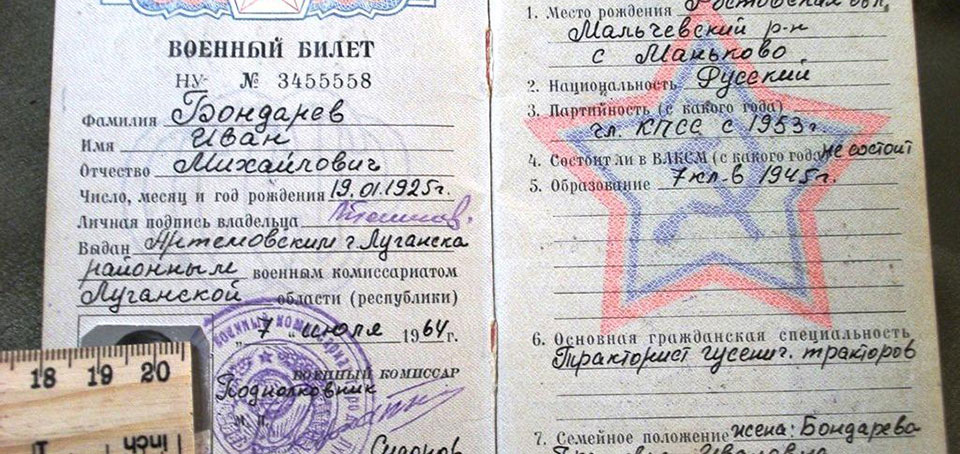 ВОЕННЫЙ БИЛЕТ
НУ- № 3455558
Фамилия Бондарев
Имя Иван
Отчество Михайлович
Число, месяц и год рождения 19.01.1925г.
Личная подпись владельца
Выдан Артемовским г. Луганска
районным военным комиссариатом
Луганской области (республики)
„7" июля 1964 г.
ВОЕННЫЙ КОМИССАР
Подполковник
М. П.
18 19 20
inch
1. Место рождения Ростовская обл,
Мальчевский р-н
с Маньково
2. Национальность Русский
3. Партийность (с какого года)
чл. КПСС с 1953г.
4. Состоит ли в ВЛКСМ (с какого года) не состоит
5. Образование 7кл-в 1945г.
6. Основная гражданская специальность
Тракторист гусенич. тракторов
7. Семейное положение жена: Бондарева
Ивановна